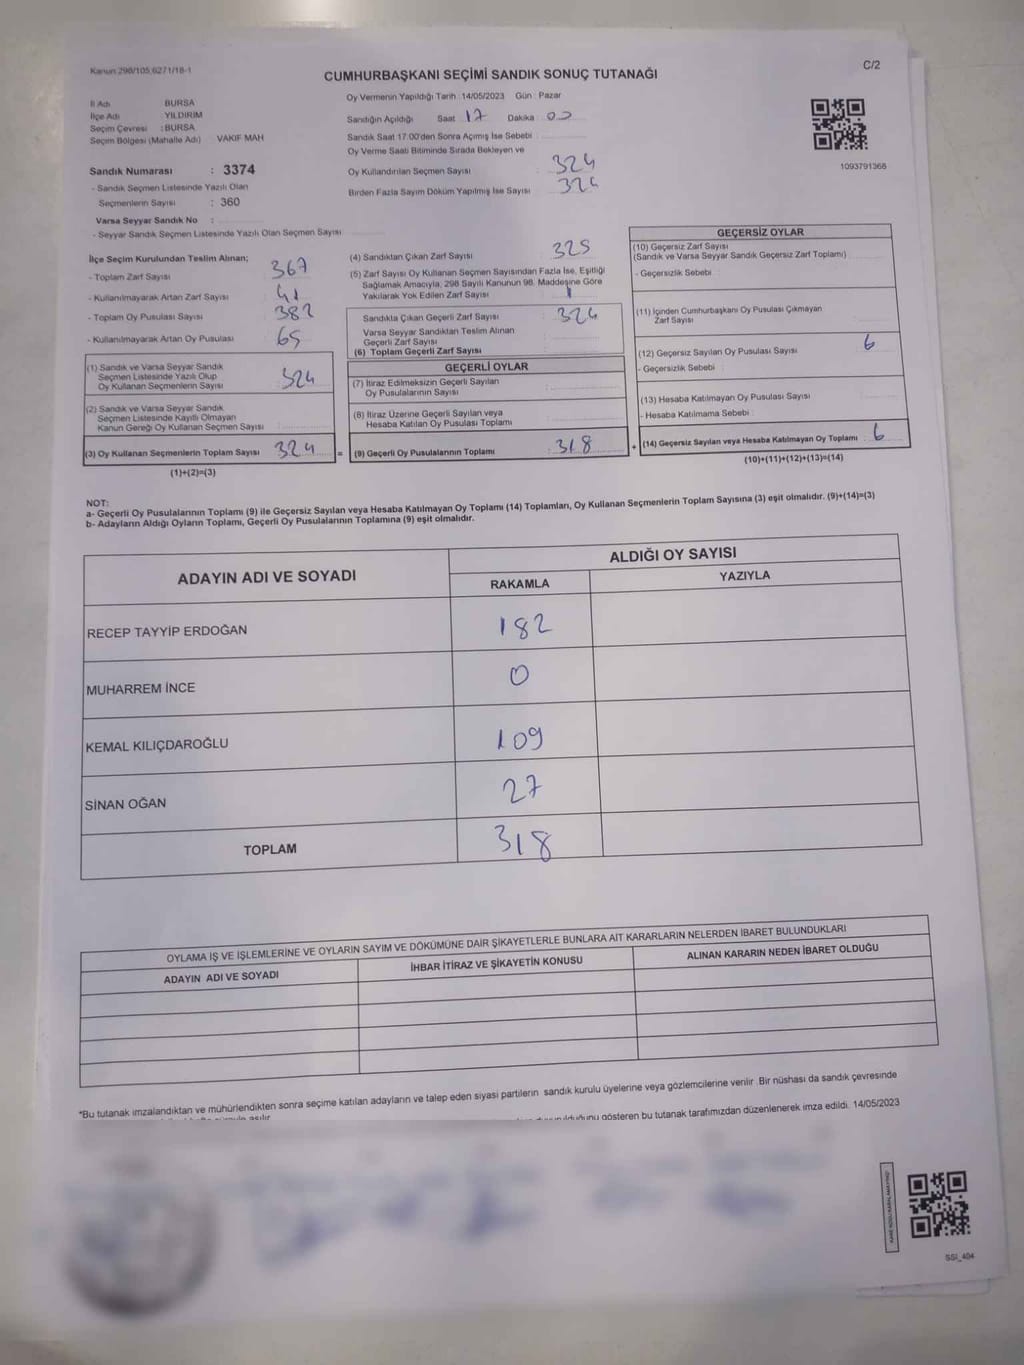 Kanun:298/105;6271/18-1
C/2
CUMHURBAŞKANI SEÇİMİ SANDIK SONUÇ TUTANAĞI
İl Adı BURSA
İlçe Adı YILDIRIM
Seçim Çevresi :BURSA
Seçim Bölgesi (Mahalle Adı) VAKIF MAH
Oy Vermenin Yapıldığı Tarih :14/05/2023 Gün : Pazar
Sandığın Açıldığı Saat 17 Dakika : 00
Sandık Saat 17:00'den Sonra Açılmış İse Sebebi :
Oy Verme Saati Bitiminde Sırada Bekleyen ve
Oy Kullandırılan Seçmen Sayısı : 324
Birden Fazla Sayım Döküm Yapılmış İse Sayısı 324
1093791368
Sandık Numarası : 3374
- Sandık Seçmen Listesinde Yazılı Olan
Seçmenlerin Sayısı : 360
Varsa Seyyar Sandık No :
- Seyyar Sandık Seçmen Listesinde Yazılı Olan Seçmen Sayısı :
İlçe Seçim Kurulundan Teslim Alınan;
- Toplam Zarf Sayısı : 367
- Kullanılmayarak Artan Zarf Sayısı : 41
- Toplam Oy Pusulası Sayısı : 382
- Kullanılmayarak Artan Oy Pusulası : 65
(1) Sandık ve Varsa Seyyar Sandık
Seçmen Listesinde Yazılı Olup
Oy Kullanan Seçmenlerin Sayısı : 324
(2) Sandık ve Varsa Seyyar Sandık
Seçmen Listesinde Kayıtlı Olmayan
Kanun Gereği Oy Kullanan Seçmen Sayısı :
(3) Oy Kullanan Seçmenlerin Toplam Sayısı : 324
(1)+(2)=(3)
(4) Sandıktan Çıkan Zarf Sayısı : 325
(5) Zarf Sayısı Oy Kullanan Seçmen Sayısından Fazla İse, Eşitliği
Sağlamak Amacıyla, 298 Sayılı Kanunun 98. Maddesine Göre
Yakılarak Yok Edilen Zarf Sayısı : 1
Sandıkta Çıkan Geçerli Zarf Sayısı : 324
Varsa Seyyar Sandıktan Teslim Alınan
Geçerli Zarf Sayısı
(6) Toplam Geçerli Zarf Sayısı :
GEÇERLİ OYLAR
(7) İtiraz Edilmeksizin Geçerli Sayılan
Oy Pusulalarının Sayısı :
(8) İtiraz Üzerine Geçerli Sayılan veya
Hesaba Katılan Oy Pusulası Toplamı :
= (9) Geçerli Oy Pusulalarının Toplamı : 318
GEÇERSİZ OYLAR
(10) Geçersiz Zarf Sayısı
(Sandık ve Varsa Seyyar Sandık Geçersiz Zarf Toplamı) :
- Geçersizlik Sebebi :
(11) İçinden Cumhurbaşkanı Oy Pusulası Çıkmayan
Zarf Sayısı :
(12) Geçersiz Sayılan Oy Pusulası Sayısı : 6
- Geçersizlik Sebebi :
(13) Hesaba Katılmayan Oy Pusulası Sayısı :
- Hesaba Katılmama Sebebi :
+ (14) Geçersiz Sayılan veya Hesaba Katılmayan Oy Toplamı : 6
(10)+(11)+(12)+(13)=(14)
NOT:
a- Geçerli Oy Pusulalarının Toplamı (9) ile Geçersiz Sayılan veya Hesaba Katılmayan Oy Toplamı (14) Toplamları, Oy Kullanan Seçmenlerin Toplam Sayısına (3) eşit olmalıdır. (9)+(14)=(3)
b- Adayların Aldığı Oyların Toplamı, Geçerli Oy Pusulalarının Toplamına (9) eşit olmalıdır.
ADAYIN ADI VE SOYADI
ALDIĞI OY SAYISI
RAKAMLA YAZIYLA
RECEP TAYYİP ERDOĞAN 182
MUHARREM İNCE 0
KEMAL KILIÇDAROĞLU 109
SİNAN OĞAN 27
TOPLAM 318
OYLAMA İŞ VE İŞLEMLERİNE VE OYLARIN SAYIM VE DÖKÜMÜNE DAİR ŞİKAYETLERLE BUNLARA AİT KARARLARIN NELERDEN İBARET BULUNDUKLARI
ADAYIN ADI VE SOYADI İHBAR İTİRAZ VE ŞİKAYETİN KONUSU ALINAN KARARIN NEDEN İBARET OLDUĞU
*Bu tutanak imzalandıktan ve mühürlendikten sonra seçime katılan adayların ve talep eden siyasi partilerin sandık kurulu üyelerine veya gözlemcilerine verilir .Bir nüshası da sandık çevresinde
gösteren bu tutanak tarafımızdan düzenlenerek imza edildi. 14/05/2023
SSI_404